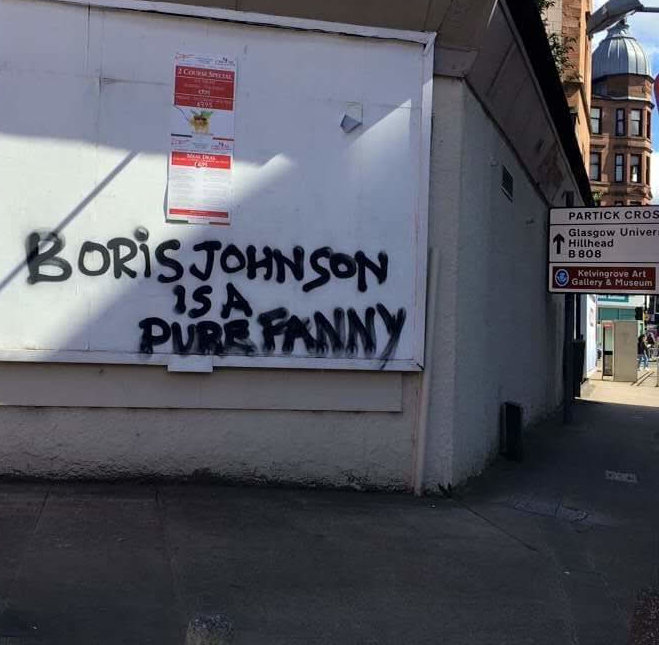 2 COURSE SPECIAL
BORIS JOHNSON
IS A
PURE FANNY
PARTICK CROS
Glasgow Univer
Hillhead
B 808
Kelvingrove Art
Gallery & Museum